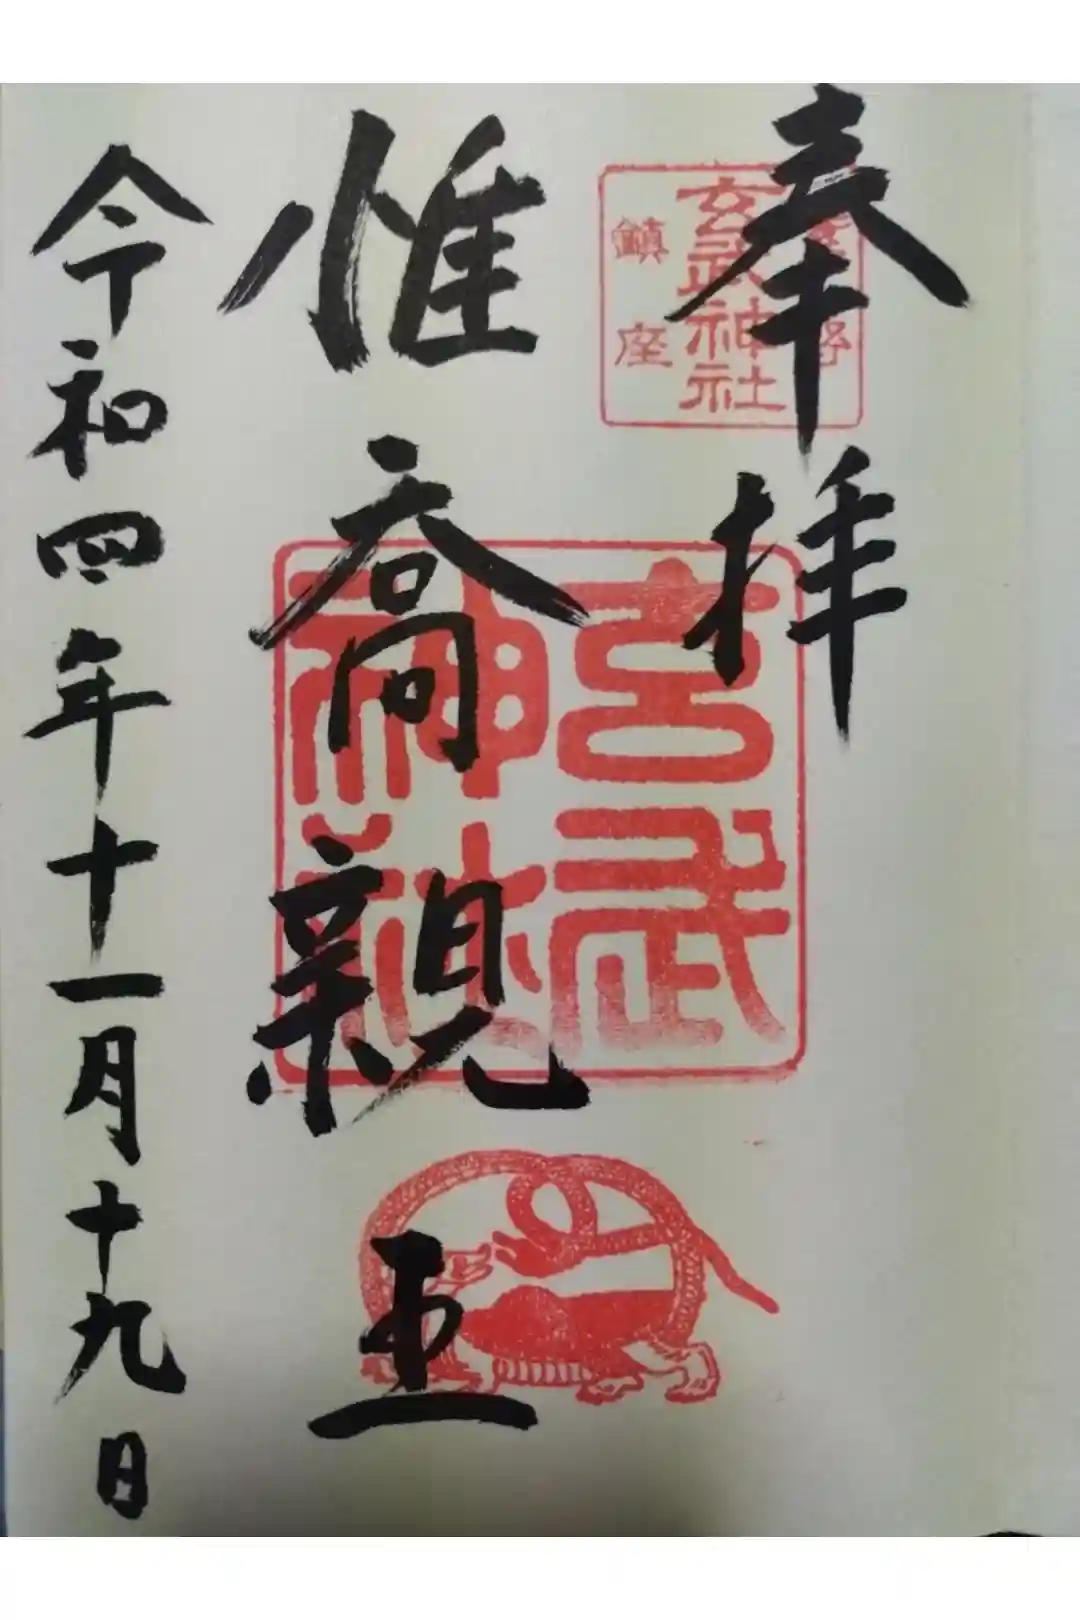 奉拝
玄武神社
鎮座
惟喬親王
玄武神社
令和四年十一月十九日